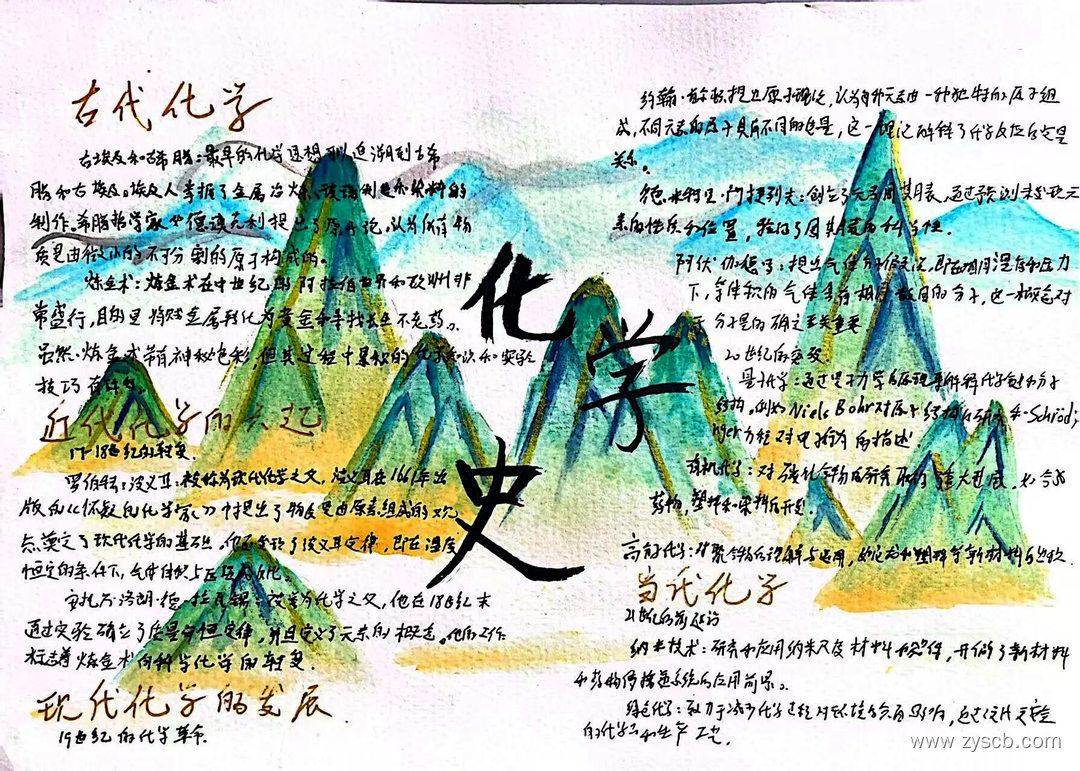 古代化学
古埃及和希腊：最早的化学思想可以追溯到古希
腊和古埃及。埃及人掌握了金属冶炼、玻璃制造和颜料的
制作。希腊哲学家如德谟克利提出了原子论，认为所有物
质是由微小的不可分割的原子构成的。
炼金术：炼金术在中世纪的阿拉伯世界和欧洲非
常盛行，目的是将贱金属转化为黄金和寻找长生不老药。
虽然炼金术带有神秘色彩，但其过程中累积的化学知识和实验
技巧
近代化学的兴起
17-18世纪的转变
罗伯特·波义耳：被称为现代化学之父，波义耳在1661年出
版的《怀疑的化学家》中提出了物质是由原素组成的观
点，奠定了现代化学的基础。他还发现了波义耳定律，即在温度
恒定的条件下，气体体积与压强成反比。
安托万·洛朗·德·拉瓦锡：被誉为化学之父，他在18世纪末
通过实验确立了质量守恒定律，并且定义了元素的概念。他的工作
标志着炼金术向科学化学的转变。
现代化学的发展
19世纪的化学革命
约翰·道尔顿提出原子理论，认为每种元素由一种独特的原子组
成，不同元素的原子具有不同的质量，这一理论解释了化学反应的定量
关系。
德米特里·门捷列夫：创立了元素周期表，通过预测未发现元
素的性质和位置，验证了周期表的科学性。
阿伏伽德罗：提出气体分子假说，即在相同温度和压力
下，等体积的气体含有相同数目的分子，这一概念对
于分子量的确定至关重要
20世纪的突变
量子化学：通过量子力学的原理来解释化学键和分子
结构。例如Niels Bohr对原子结构的研究和Schrödi
nger方程对电子行为的描述
有机化学：对碳化合物的研究取得了重大进展，如合成
药物，塑料和染料的开发。
高分子化学：对聚合物的理解与应用，如尼龙和塑料等新材料的出现
当代化学
21世纪的前沿
纳米技术：研究和应用纳米尺度材料和器件，开创了新材料
和药物传播系统的应用前景。
绿色化学：致力于减少化学过程对环境的负面影响，通过设计更安全
的化学品和生产工艺。
化
学
史
www.zyscb.com